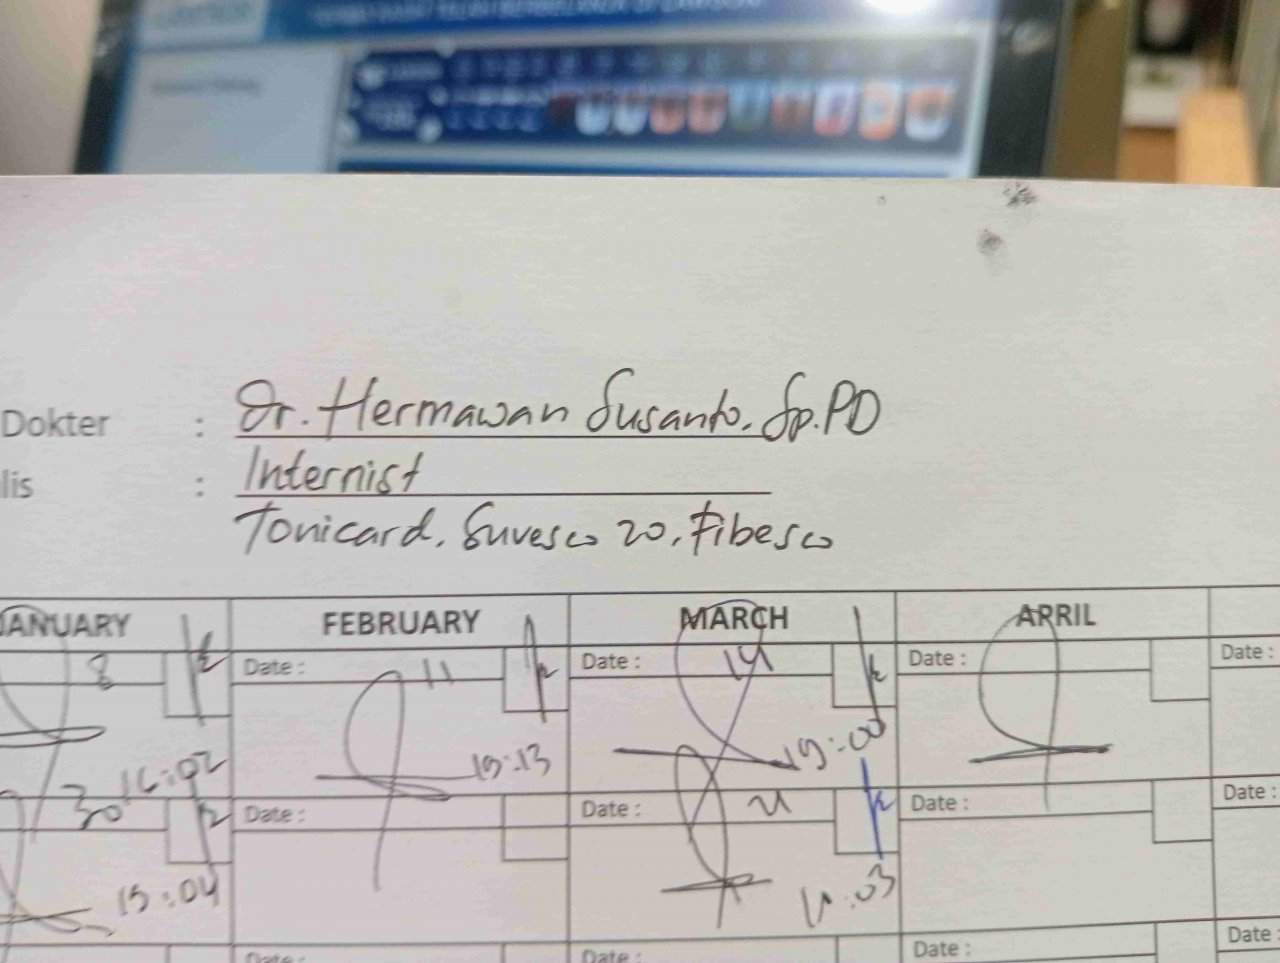 Dokter : Dr. Hermawan Susanto. Sp.PD
lis : Internist
Tonicard. Suvesco 20. Fibesco
ANUARY FEBRUARY MARCH APRIL
8 Date : 11 Date : 14 Date : Date :
16:02 19:13 19:00
30 Date : Date : 21 Date : Date :
15:04 11:03
Date : Date : Date : Date :